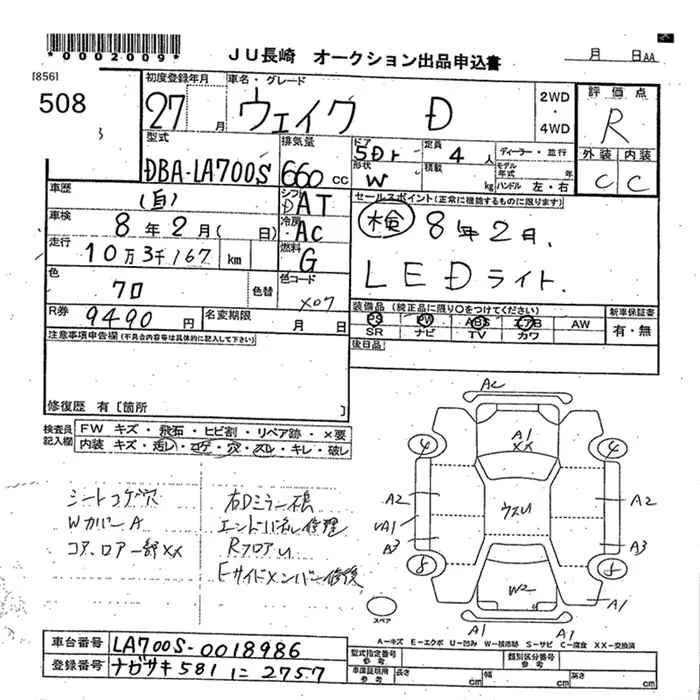 *0002009*
JU長崎 オークション出品申込書
月 日AA
[856]
508
初度登録年月
27 月
車名・グレード
ウェイク D
2WD
・
4WD
評価点
R
外装 内装
C C
型式
DBA-LA700S
排気量
660 cc
ドア
5Dr
形状
W
定員
4 人
積載
kg
ディーラー・並行
モデル年式 年
ハンドル 左・右
車歴
(自)
シフト
DAT
車検
8年2月(日)
冷房
AC
走行
10万3千167 km
燃料
G
色
クロ
色替
色コード
X07
R券
9490 円
名変期限
月 日
セールスポイント(正常に機能するものに限ります)
検 8年2月.
LEDライト.
装備品(純正品に限り○をつけてください)
PS PW ABS エアB AW
SR ナビ TV カワ
新車保証書
有・無
後日品
注意事項申告欄(不具合内容等は具体的に記入して下さい)
修復歴 有[箇所 ]
検査員記入欄
FW キズ・飛石・ヒビ割・リペア跡・×要
内装 キズ・汚レ・コゲ・穴・スレ・キレ・破レ
シートコゲ穴
WカバーA
コア、ロアー部XX
右Dミラー傷
エンドパネル修理
RフロアU
Fサイドメンバー修復
AC
A1
XX
4 4
A2 ウスU A2
UA1
A3 A3
8 8
W2
A1
A1 A1
スペア
A-キズ E-エクボ U-凹み W-板金跡 S-サビ C-腐食 XX-交換済
車台番号 LA700S-0018986
登録番号 ナガサキ581に2757
型式指定番号
参考
類別区分番号
参考
車庫証明用
参考
長さ cm
幅 cm
高さ cm